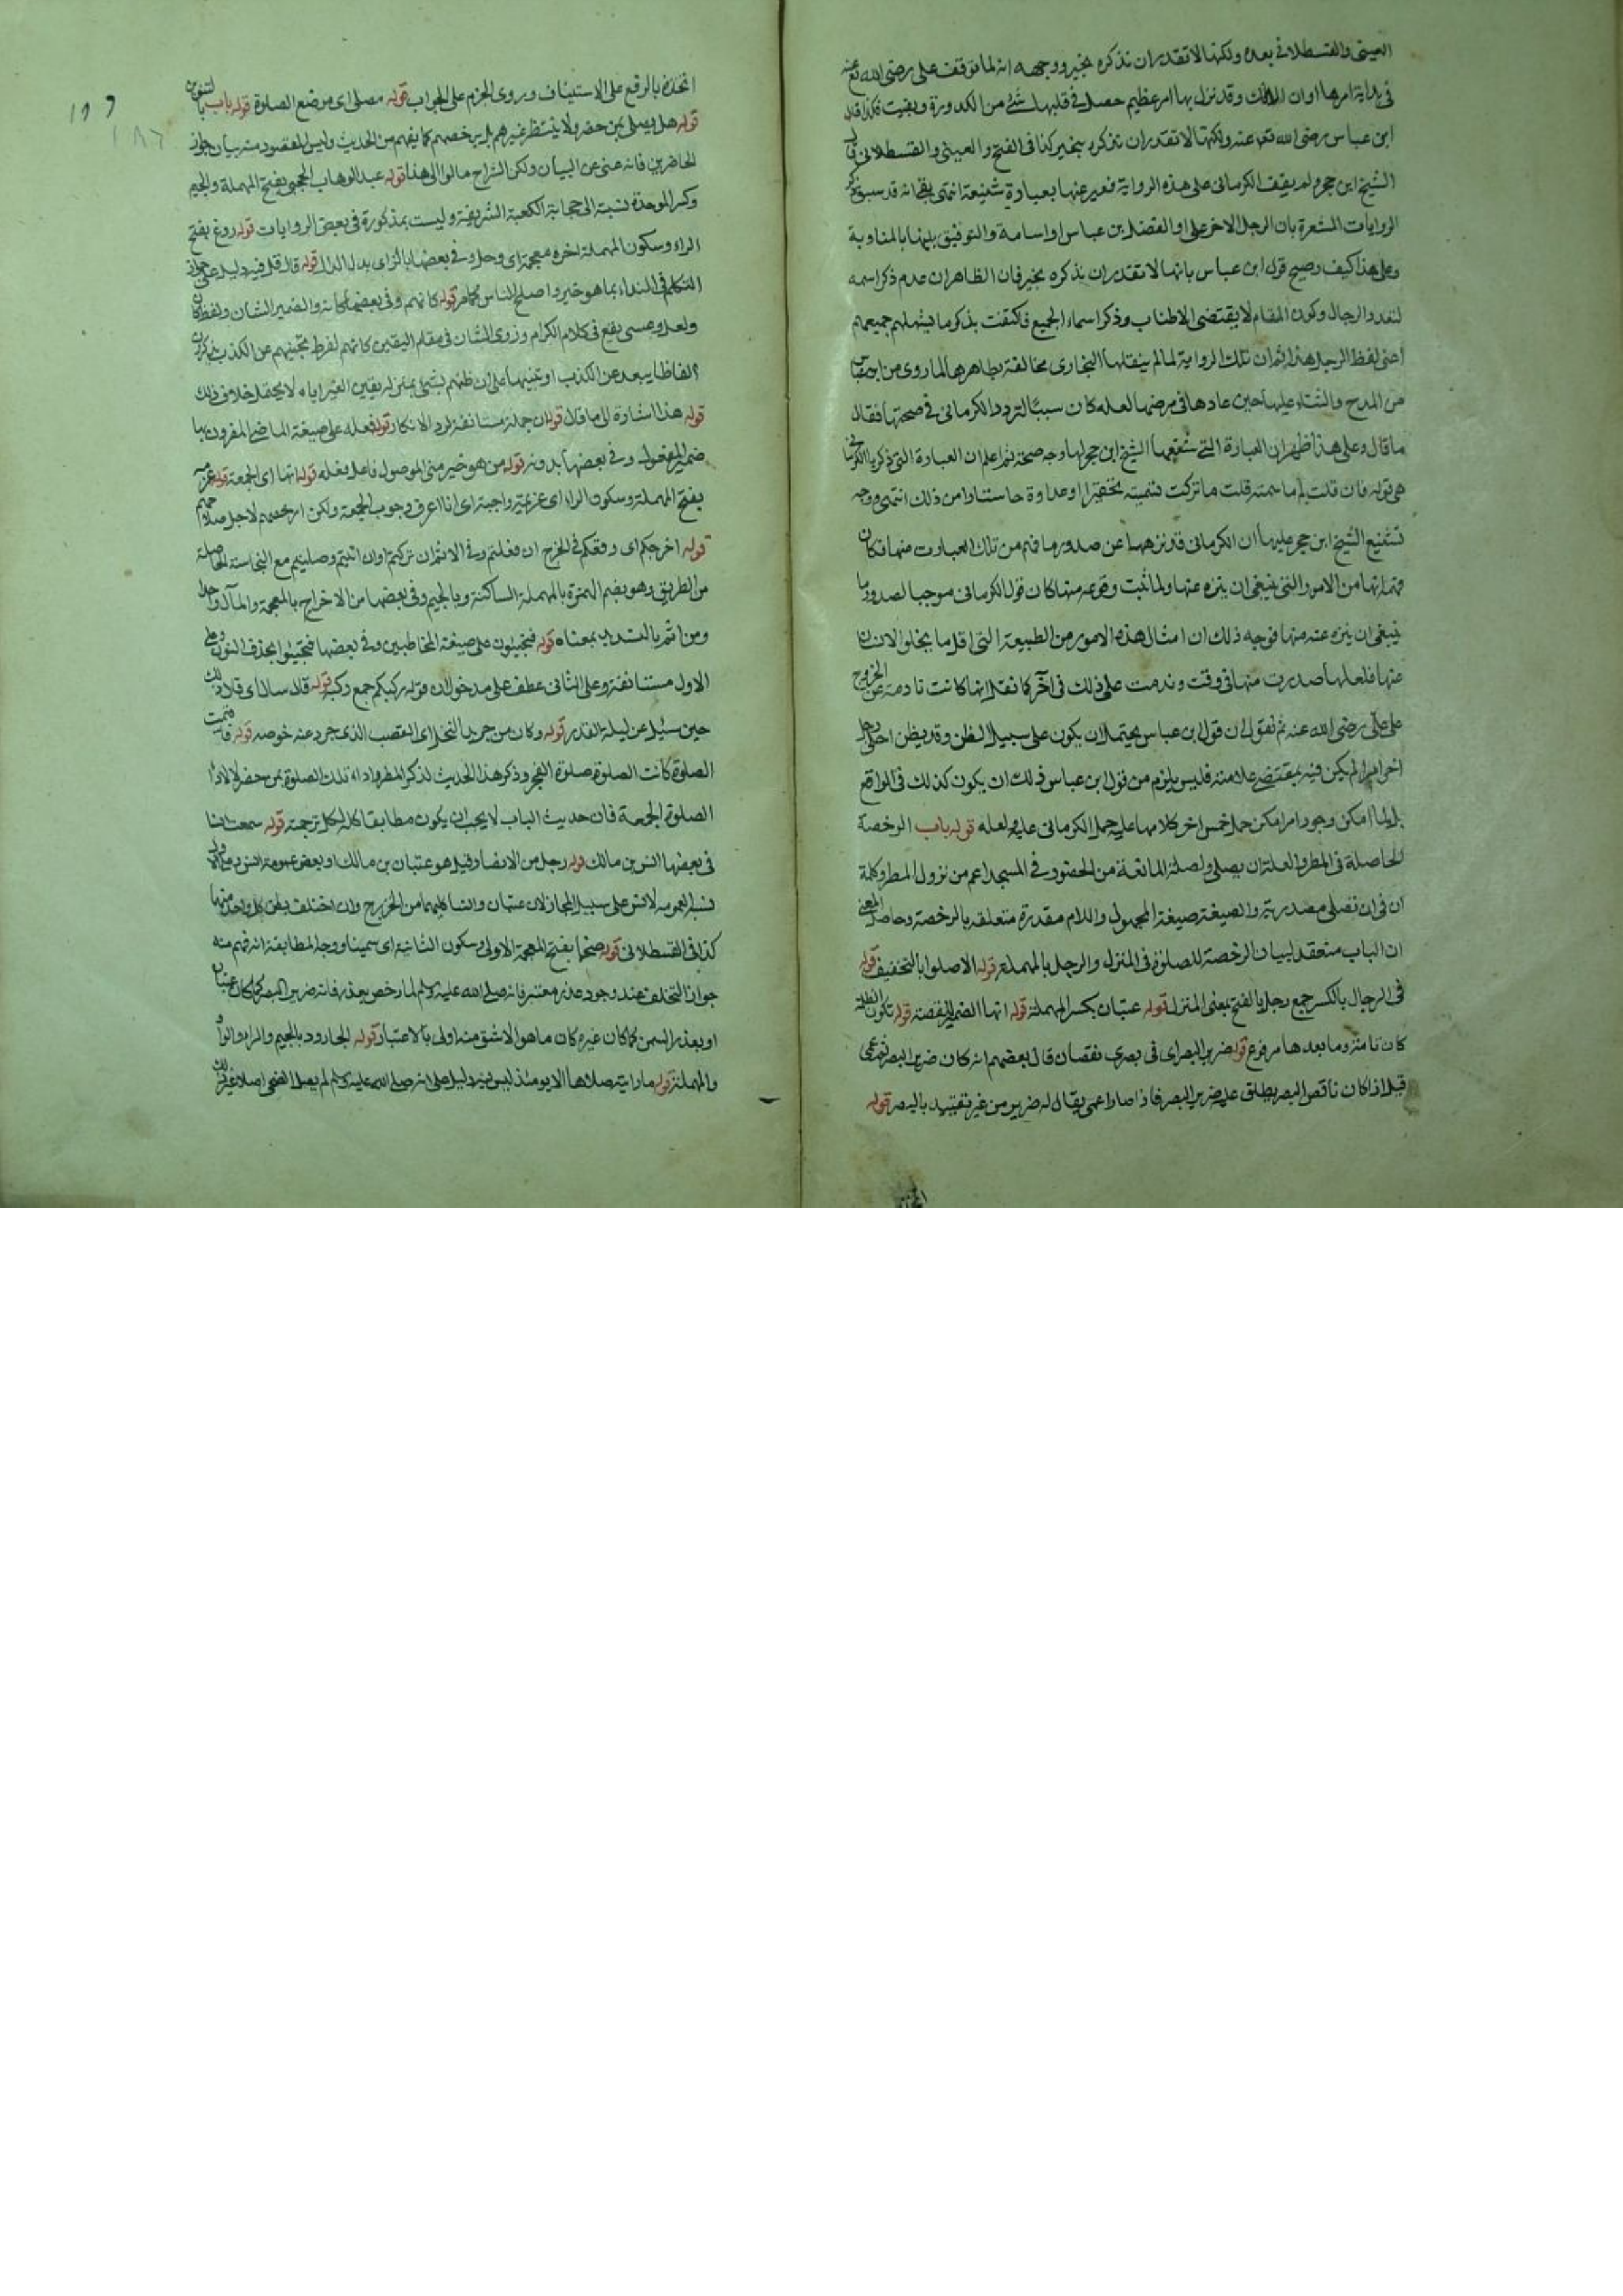 العينى والقسطلانى بعده ولكنها لا تقدر ان تذكره بخير ووجهه انه لما توقف على رضى الله تع عنه
فى بداية امرها اوان الافك وقد نزل بها امر عظيم حصل فى قلبها شئ من الكدورة وبقيت فلذا قال
ابن عباس رضى الله تعه عنه ولكنها لا تقدر ان تذكره بخير كذا فى الفتح والعينى والقسطلانى قال
الشيخ ابن حجر ولم يقف الكرمانى على هذه الرواية فعبر عنها بعبارة شنيعة انتهى قد سبق ذكر
الروايات المشعرة بان الرجل الاخر على او الفضل بن عباس او اسامة والتوفيق بينها بالمناوبة
وعلى هذا كيف يصح قول ابن عباس بانها لا تقدر ان تذكره بخير فان الظاهر ان عدم ذكر اسمه
لتعدد الرجال وكون المقام لا يقتضى الاطناب وذكر اسماء الجميع فاكتفت بذكر ما يشملهم جميعهم
اعنى لفظ الرجل هذا ثم ان تلك الرواية لما لم ينقلها البخارى مخالفة بظاهرها لما روى من ابن عباس
من المدح والثناء عليها حين عادها فى مرضها لعله كان سببًا لتردد الكرمانى فى صحتها فقال
ما قال وعلى هذا ظهر ان العبارة التى شنعها الشيخ ابن حجر لها وجه صحة ثم اعلم ان العبارة التى ذكرها الكرمانى
هى قوله فان قلت لم ما سمته قلت ما تركت تسميته تحقيرا او عداوة حاشاها من ذلك انتهى ووجه
تشنيع الشيخ ابن حجر عليها ان الكرمانى قد نزهها عن صدور ما فهم من تلك العبارت منها فكان
من الامور التى ينبغى ان ينزه عنها ولما ثبت وقوعه منها كان قول الكرمانى موجبا لصدور ما
ينبغى ان ينزه عنه منها فوجه ذلك ان امثال هذه الامور من الطبيعة التى اقل ما يخلو الانسان
عنها فلعلها صدرت منها فى وقت وندمت على ذلك فى آخر كما نقل انها كانت نادمة عن الخروج
على على رضى الله عنه ثم نقول ان قول ابن عباس يحتمل ان يكون على سبيل الظن وقد يظن احد
اخر امرا لم يكن فيه بمقتضى علامته فليس يلزم من قول ابن عباس ذلك ان يكون كذلك فى الواقع
بل لما امكن وجود امر امكن حمل اخر كلامها عليه حمل الكرمانى عليه لعله قوله باب الرخصة
الحاصلة فى المطر والعلة ان يصلى ولصلة المانعة من الحضور فى المسجد اعم من نزول المطر وكلمة
ان فى ان تصلى مصدرية والصيغة صيغة المجهول واللام مقدرة متعلقه بالرخصة وحاصل المعنى
ان الباب منعقد لبيان الرخصة للصلوة فى المنزل والرحل بالمهملة قوله الا صلوا بالتخفيف قوله
فى الرحال بالكسر جمع رحل بالفتح بمعنى المنزل قوله عتبان بكسر المهملة قوله انها الضمير للقصة قوله تكون الظلمة
كان تامة وما بعدها مرفوع قوله ضرير البصر اى فى بصرى نقصان قال بعضهم انه كان ضرير البصر ثم عمى
قيل اذا كان ناقص البصر يطلق عليه ضرير البصر فاذا صار اعمى يقال له ضرير من غير تقييد بالبصر قوله
اتخذه
١٩٩
١٨٦
اتخذه بالرفع على الاستيناف وروى الجزم على الجواب قوله مصلى اى موضع الصلوة قوله باب بالتنوين
قوله هل يصلى بمن حضر ولا ينتظر غيرهم بل يرخصهم كما يفهم من الحديث وليس المقصود منه بيان جواز
الحاضرين فانه غنى عن البيان ولكن الشراح مالوا الى هذا قوله عبد الوهاب الحجبى بفتح المهملة والجيم
وكسر الموحدة نسبة الى حجابة الكعبة الشريفة وليست بمذكورة فى بعض الروايات قوله ردغ بفتح
الراء وسكون المهملة اخره معجمة اى وحل وفى بعضها بالزاى بدل الدال قوله قال قل فيه دليل على جواز
التكلم فى النداء بما هو خير واصلح للناس كما مر قوله كانهم وفى بعضها كانه والضمير للشان ولفظ كان
ولعل وعسى يقع فى كلام الكرام وذوى الشان فى مقام اليقين كانهم لفرط تجنبهم عن الكذب يذكرون
الفاظا يبعد عن الكذب او تنبيها على ان ظنهم بشئ بمنزلة يقين الغير اياه لا يحتمل خلاف ذلك
قوله هذا اشارة الى ما قال قوله ان جملة مستانفة لرد الانكار قوله فعله على صيغة الماضى المقرون بها
ضمير المفعول وفى بعضها بدونه قوله من هو خير منى الموصول فاعل فعله قوله انها اى الجمعة قوله عزمة
بفتح المهملة وسكون الزاء اى عزيمة واجبة اى انا اعرف وجوب الجمعة ولكن ارخصهم لاجل صلاحهم
قوله اخرجكم اى اوقعكم فى الحرج ان فعلتم وفى الاثم ان تركتم اوان اتيتم وصليتم مع النجاسة الحاصلة
من الطريق وهو بضم الهمزة بالمهملة الساكنة وبالجيم وفى بعضها من الاخراج بالمعجمة والمآل واحد
ومن اثم بالتشديد بمعناه قوله فتجيئون على صيغة المخاطبين وفى بعضها فتجيئوا بحذف النون وعلى
الاول مستانفة وعلى الثانى عطف على مدخول ان قوله ركبكم جمع ركبة قوله قال سالت اى قال ذلك
حين سئل عن ليلة القدر قوله وكان من جريد النخل اى القضب الذى جرد عنه خوصه قوله فاقيمت
الصلوة كانت الصلوة صلوة الفجر وذكر هذا الحديث لذكر المطر واداء تلك الصلوة بمن حضر لا لاداء
الصلوة الجمعة فان حديث الباب لا يجب ان يكون مطابقا كله لكل ترجمة قوله سمعت انسا
فى بعضها انس بن مالك قوله رجل من الانصار قيل هو عتبان بن مالك
على سبيل المجاز لان عتبان وانسا كليهما من الخزرج وان اختلف بطن كل واحد منهما
كذا فى القسطلانى قوله ضخما بفتح المعجمة الاولى وسكون الثانية اى سمينا ووجه المطابقة انه فهم منه
جواز التخلف عند وجود عذر معتبر فانه صلى الله عليه وسلم لما رخص بعذر فانه ضرير البصر كما كان عتبان
او بعذر السمن كما كان غيره كان ما هو الاشق منه اولى بالاعتبار قوله الجارود بالجيم والراء والواو
والمهملة قوله ما رايته صلاها الا يومئذ ليس فيه دليل على انه صلى الله عليه وسلم لم يصل الضحى اصلا غير ذلك